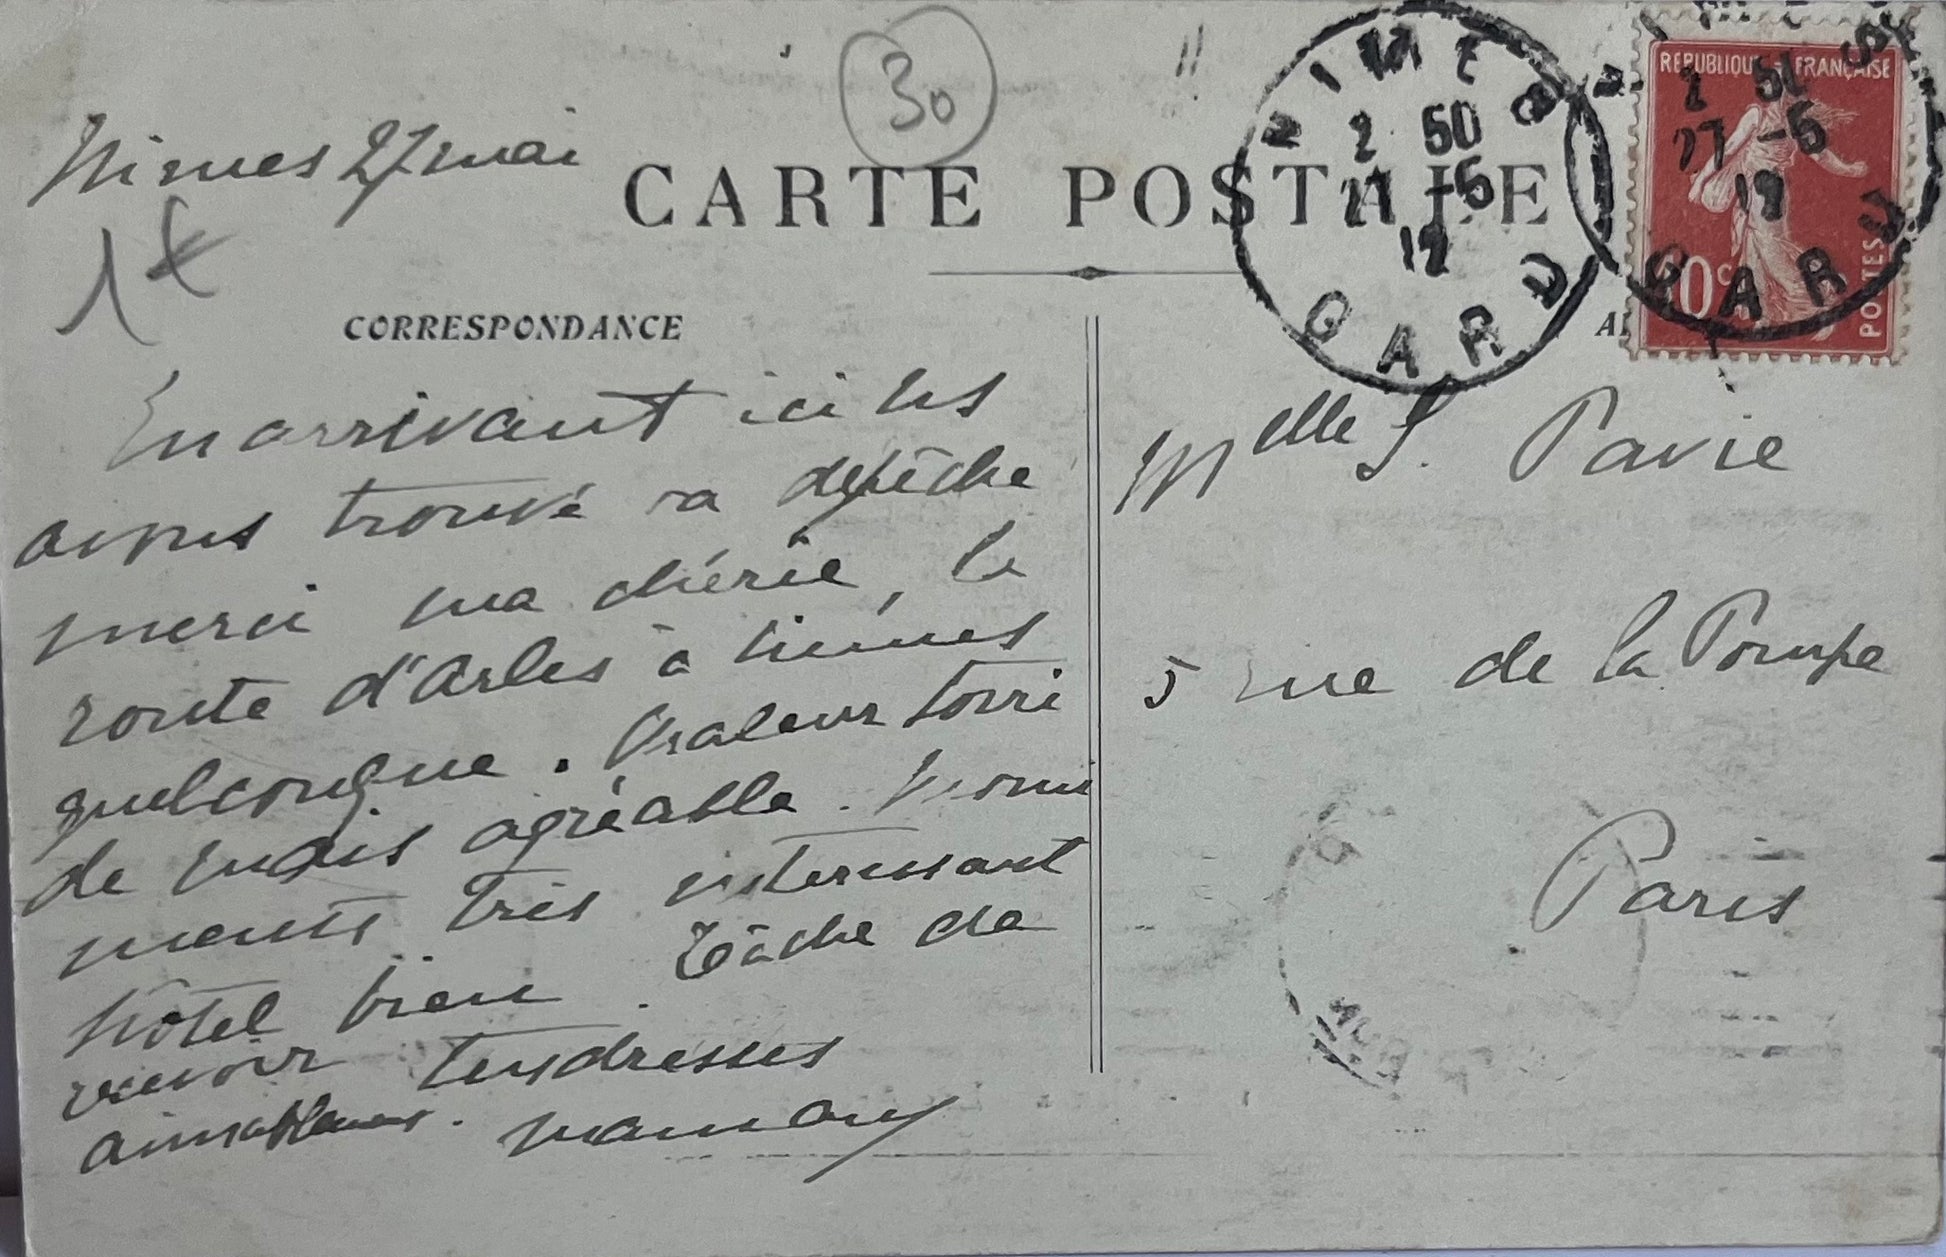 30
NIMES
2 50
27 -5
12
GARD
REPUBLIQUE FRANÇAISE
2 50
27 -5
12
GARD
10 c
POSTES
Nimes 27 mai
CARTE POSTALE
1 €
CORRESPONDANCE
En arrivant ici
avons trouvé ta depêche
merci ma chérie, la
route d'Arles à nimes
quelconque. Chaleur torri
de mais agréable. Monu
ments très interessant
hôtel bien. Tâche de
recevoir tendresses
maman
Melle S. Pavie
5 rue de la Pompe
Paris